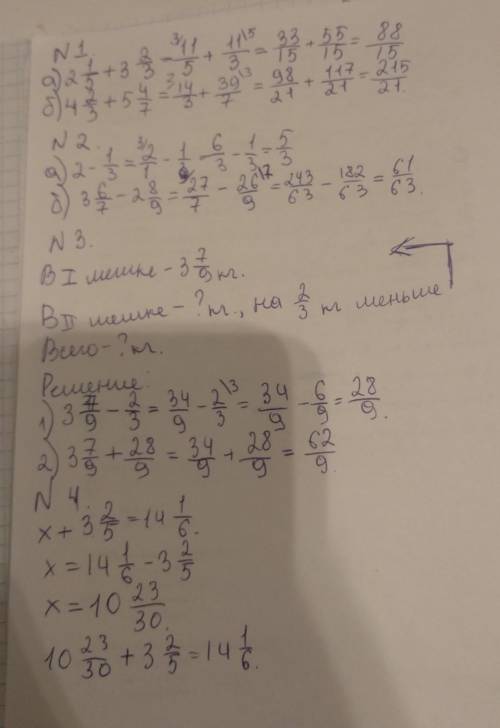 N 1.
а) 2 1/5 + 3 2/3 = ³\11/5 + 11/3\⁵ = 33/15 + 55/15 = 88/15
б) 4 2/3 + 5 4/7 = 14/3 + 39/7\³ = 98/21 + 117/21 = 215/21.
N 2.
а) 2 - 1/3 = ³\2/1 - 1/3 = 6/3 - 1/3 = 5/3
б) 3 6/7 - 2 8/9 = 27/7 - 26/9\⁷ = 243/63 - 182/63 = 61/63.
N 3.
В I мешке - 3 7/9 кг.
В II мешке - ? кг., на 2/3 кг меньше
Всего - ? кг.
Решение:
1) 3 7/9 - 2/3 = 34/9 - 2/3\³ = 34/9 - 6/9 = 28/9.
2) 3 7/9 + 28/9 = 34/9 + 28/9 = 62/9.
N 4.
x + 3 2/5 = 14 1/6.
x = 14 1/6 - 3 2/5
x = 10 23/30.
10 23/30 + 3 2/5 = 14 1/6.